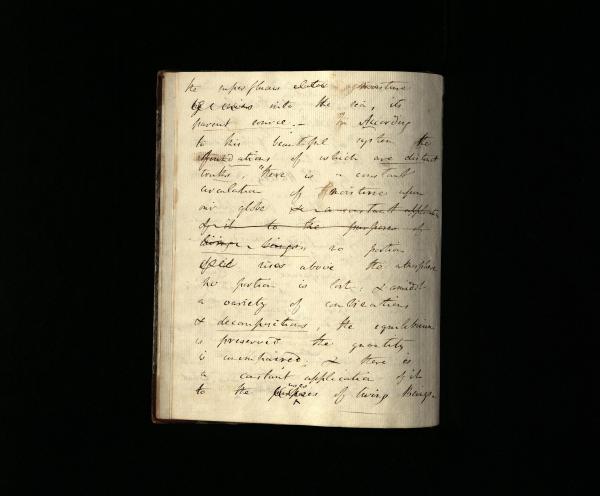 the superfluous moisture
into the sea, its
parent source. – In According
to this beautiful system the
foundations of which are distinct
truths, "there is a constant
circulation of moisture upon
our globe & a constant application
of it to the purposes of
living beings no portion
rises above the atmosphere
no portion is lost; & amidst
a variety of combinations
& decompositions, the equilibrium
is preserved the quantity
is unimpaired, & there is
a constant application of it
to the uses of living beings.